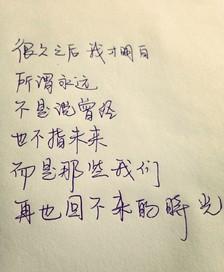 很久之后 我才明白
所谓永远
不是说曾经
也不指未来
而是那些我们
再也回不来的時光